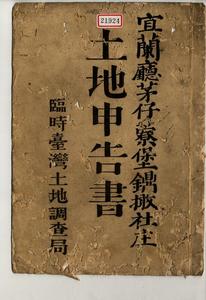 21924
宜蘭廳茅仔寮堡鼎橄社庄
土地申告書
臨時臺灣土地調查局